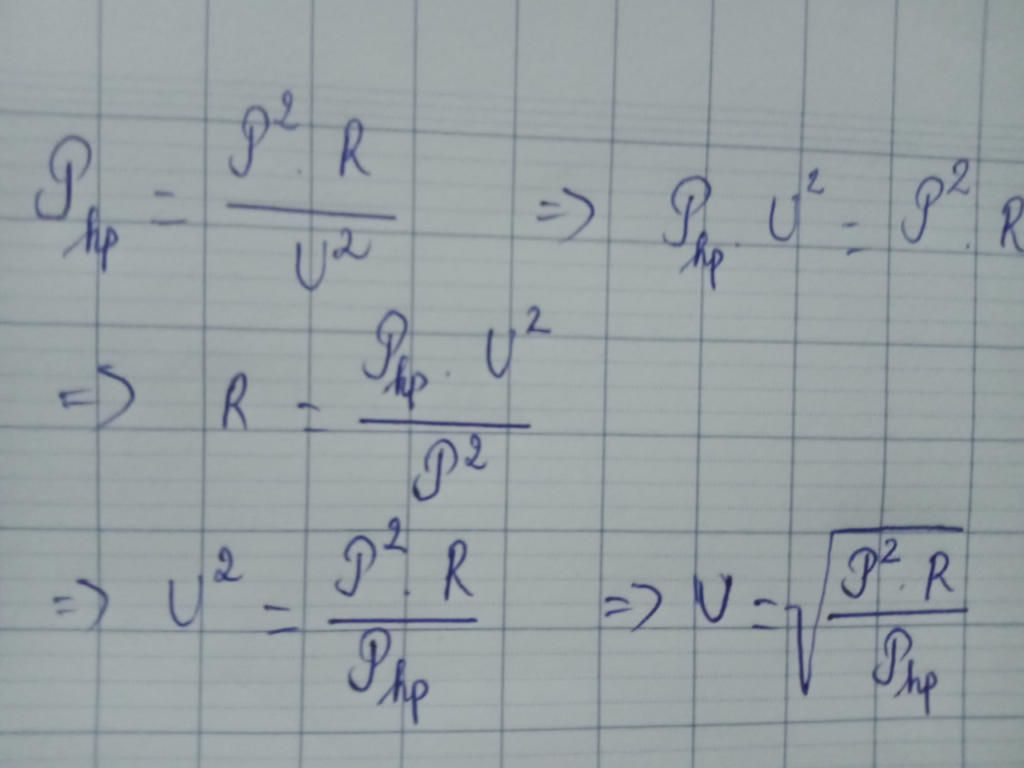 𝒫hp = 𝒫² . R / U² => 𝒫hp . U² = 𝒫² . R
=> R = 𝒫hp . U² / 𝒫²
=> U² = 𝒫² . R / 𝒫hp => U = √(𝒫² . R / 𝒫hp)